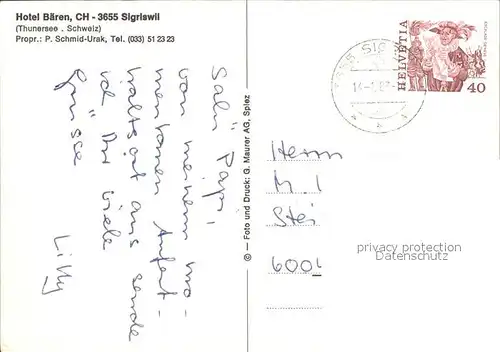 Hotel Bären, CH - 3655 Sigriswil
(Thunersee . Schweiz)
Propr.: P. Schmid-Urak, Tel. (033) 51 23 23
Salü Papi,
von meinem mo-
mentanen Aufent-
haltsort aus sende
ich Dir viele
Grüsse
Lilly
© — Foto und Druck: G. Maurer AG, Spiez
3655 SIG
HELVETIA
40
Herrn
M
Stei
600
privacy protection
Datenschutz